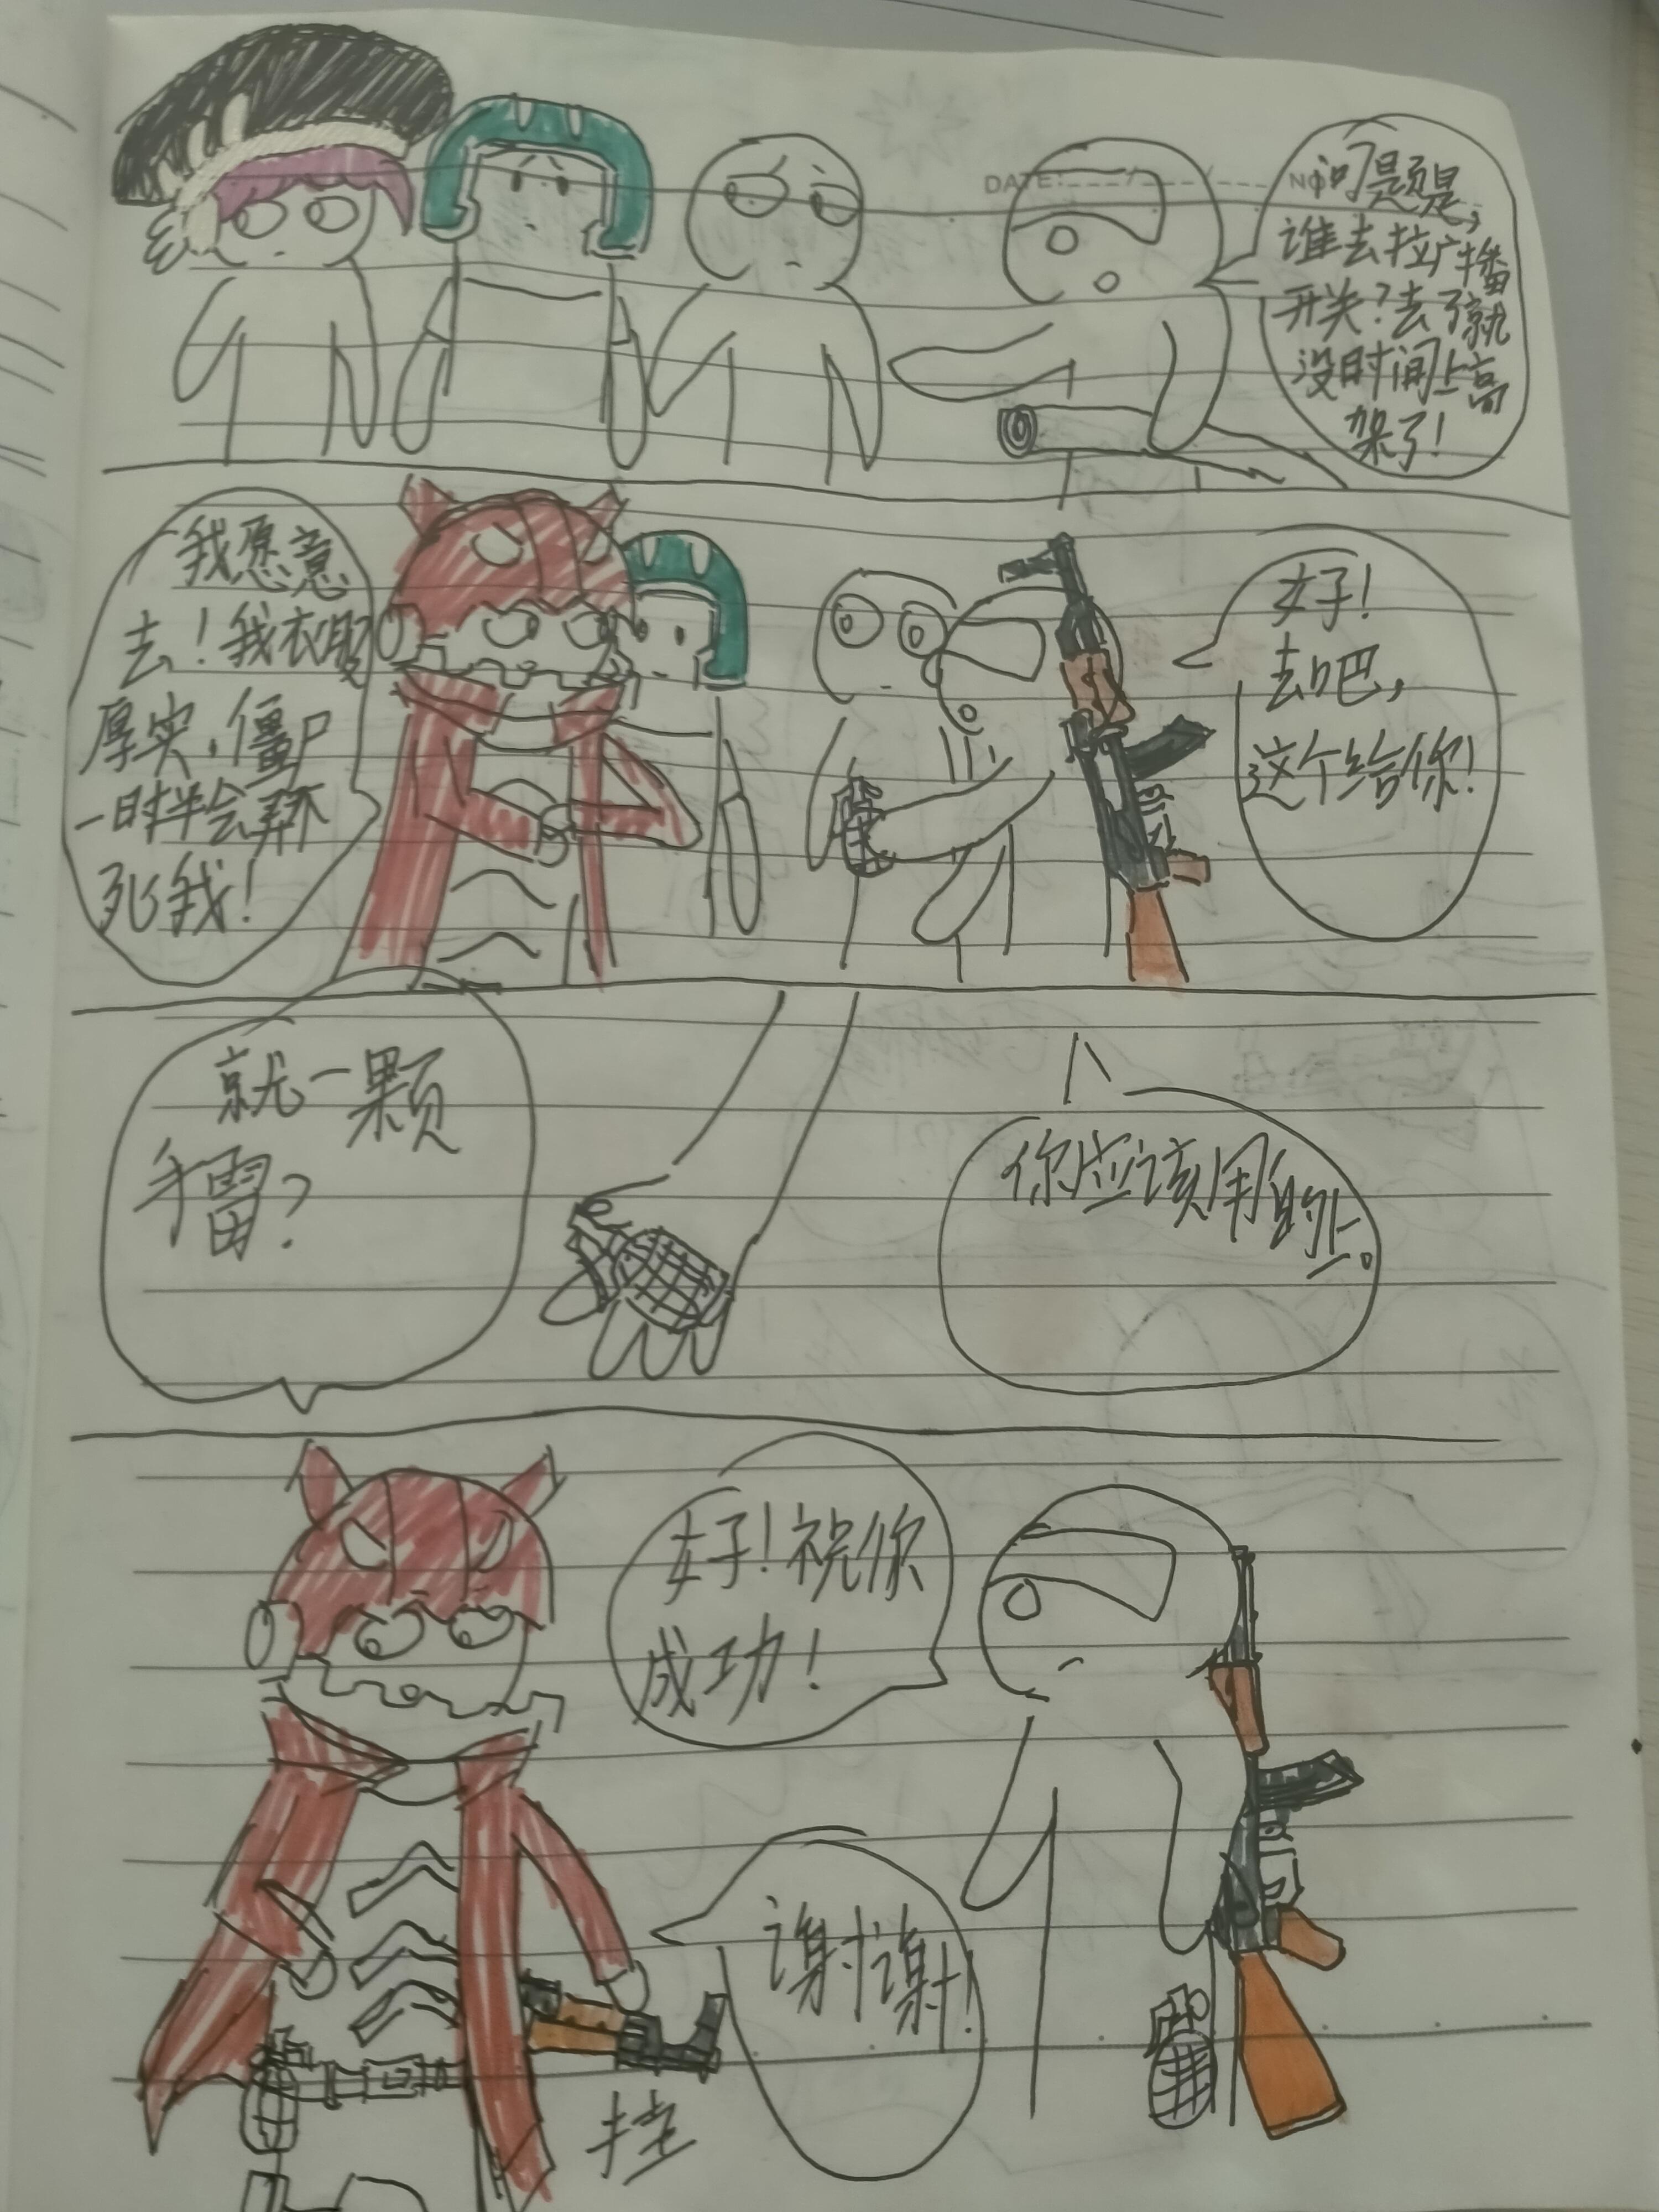 DATE: ___/___/___ NO
问题是,
谁去拉广播
开关?去了就
没时间上高
架了!
我愿意
去!我衣服
厚实,僵尸
一时半会弄不
死我!
好!
去吧,
这个给你!
就一颗
手雷?
你应该用的上。
好!祝你
成功!
谢谢!
挂